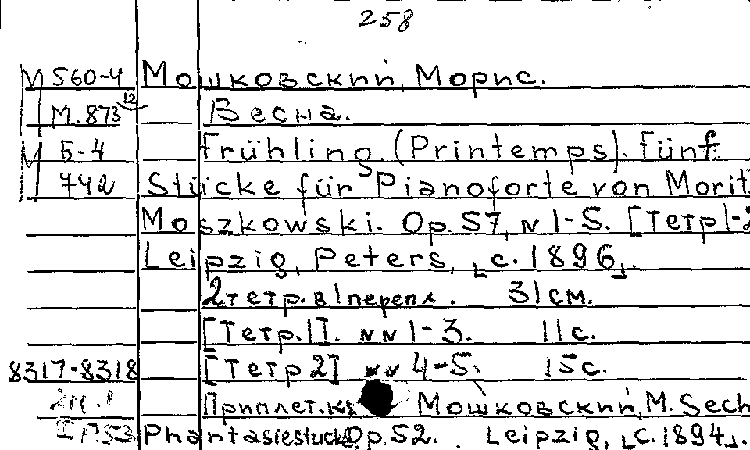 258
М 560-4 Мошковский, Морис.
М.873 12 Весна.
5-4 Frühling. (Printemps). Fünf
742 Stücke für Pianoforte von Morit
Moszkowski. Op. 57, N 1-5. [Тетр 1-2
Leipzig, Peters, [c. 1896].
2 тетр. в 1 перепл. 31 см.
[Тетр. 1]. NN 1-3. 11 с.
8317-8318 [Тетр 2] NN 4-5. 15 с.
Приплет. к Мошковский, М. Sech
1753 Phantasiestücke Op. 52. Leipzig, [c. 1894].